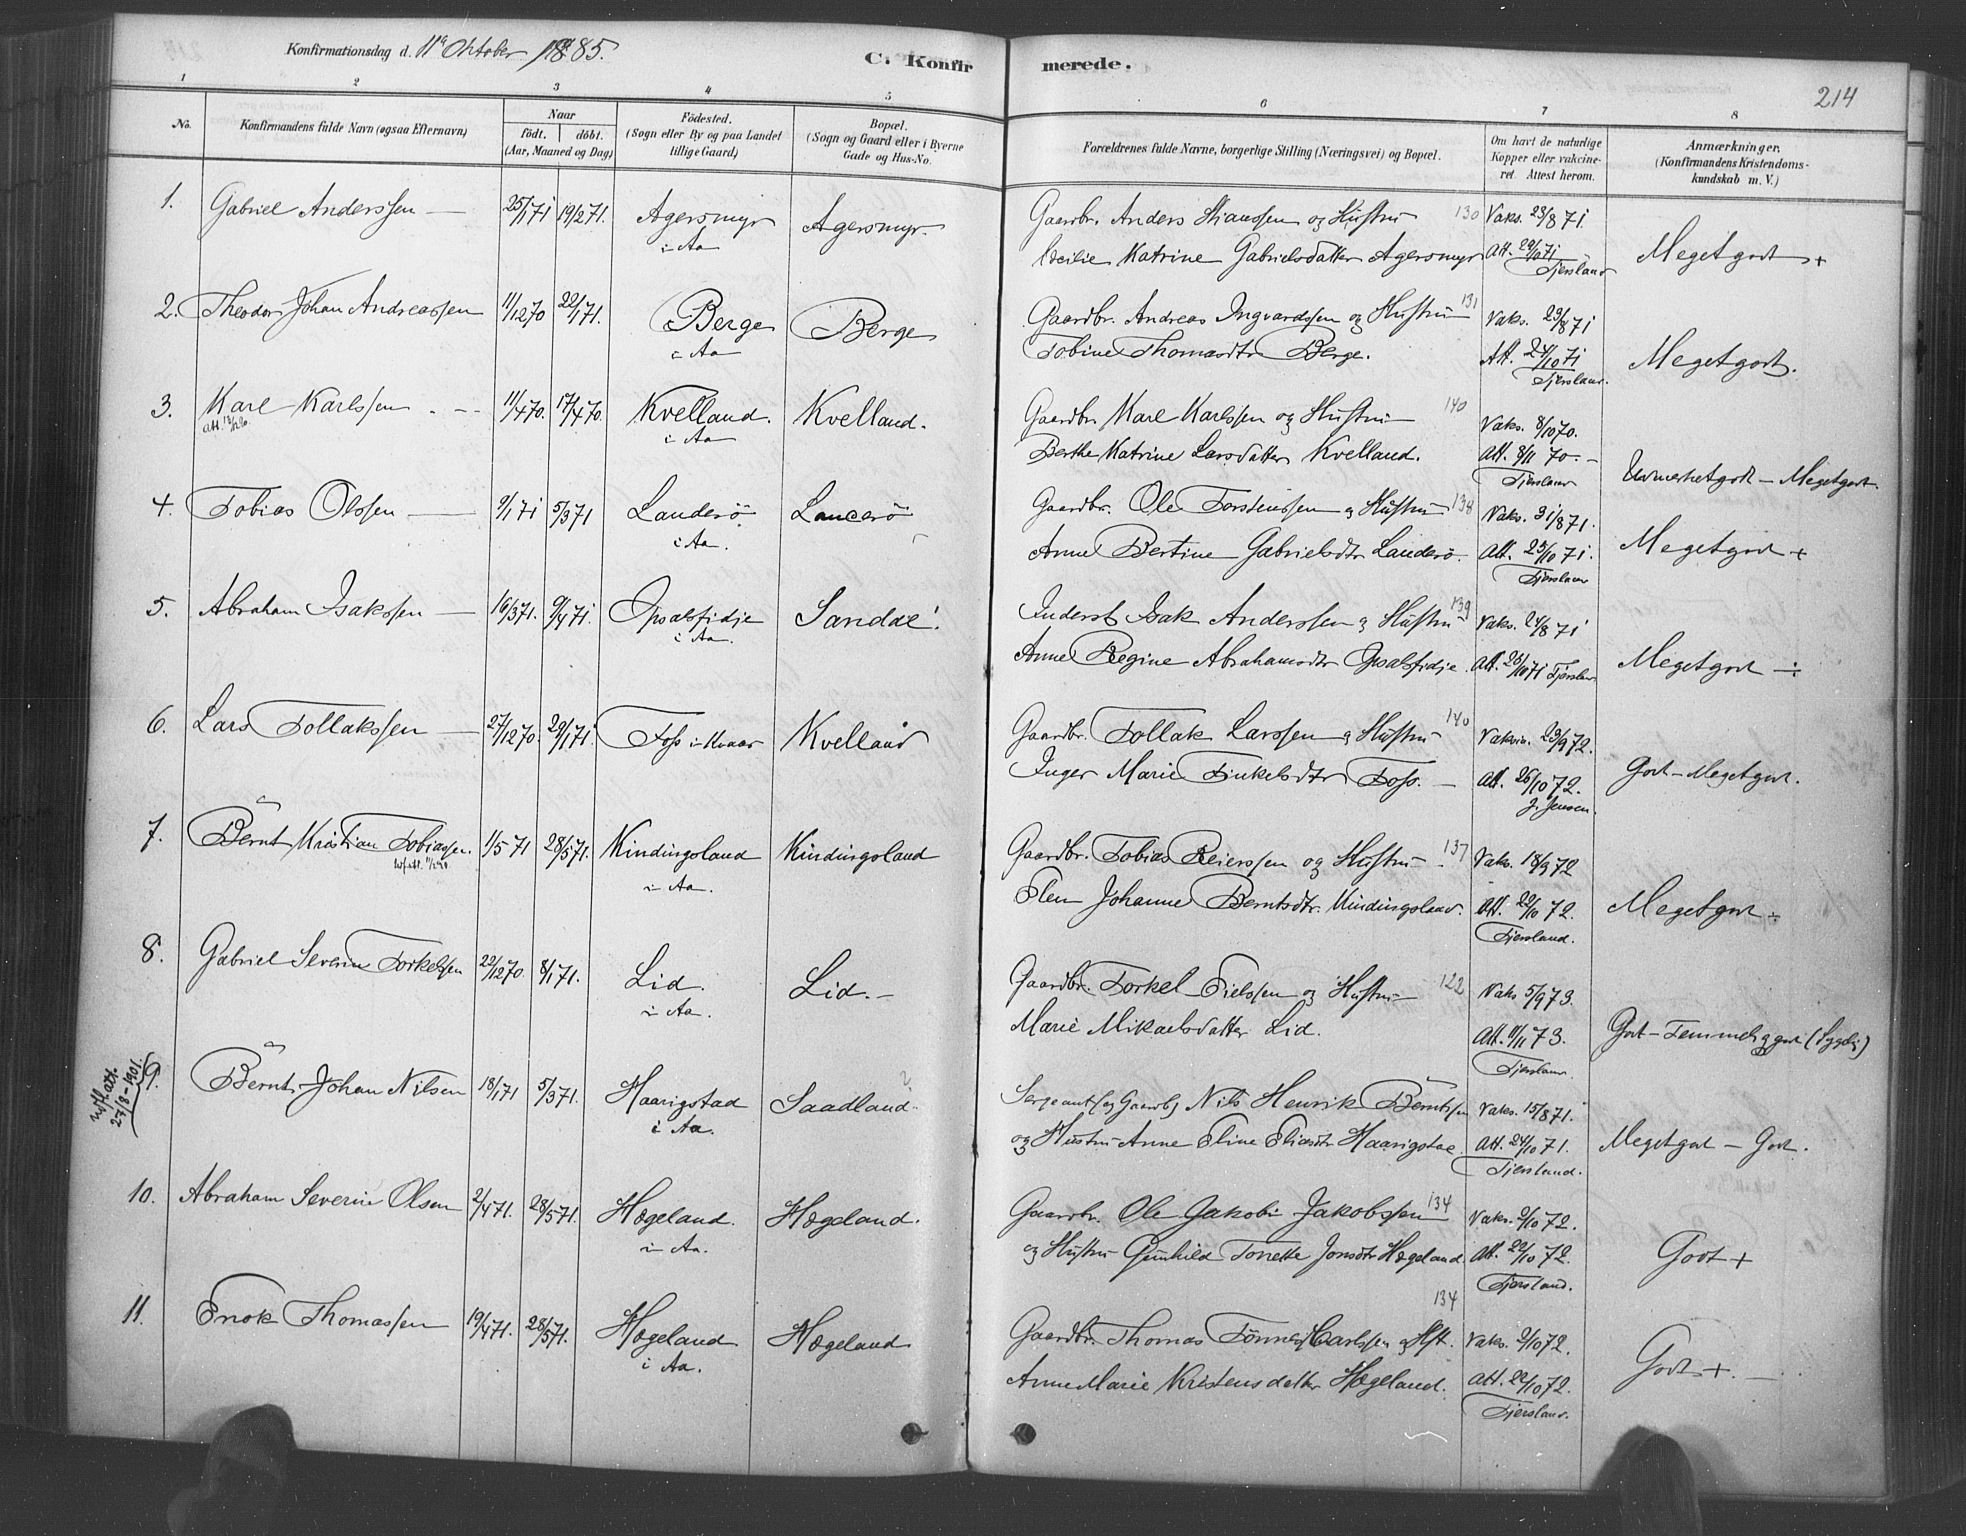 Konfirmationsdag d. 11te Oktober 1885.
C. Konfirmerede.
214
1 2 3 4 5 6 7 8
No.
Konfirmandens fulde Navn (ogsaa Efternavn)
Naar
født. døbt.
(Aar, Maaned og Dag)
Fødested.
(Sogn eller By og paa Landet
tillige Gaard)
Bopæl.
(Sogn og Gaard eller i Byerne
Gade og Hus-No.
Forældrenes fulde Navne, borgerlige Stilling (Næringsvei) og Bopæl.
Om havt de naturlige
Kopper eller vakcine-
ret. Attest herom.
Anmærkninger.
(Konfirmandens Kristendoms-
kundskab m. V.)
1. Gabriel Anderssen — 25/1 71 19/2 71. Agersmyr Agersmyr. Gaardbr. Anders Stianssen og Hustru 130 Vaks. 23/8 71.
i Aa Cecilie Katrine Gabrielsdatter Agersmyr Att. 24/10 71 Meget godt +
Tjersland
2. Theodor Johan Andreassen 11/12 70 22/1 71. Berge Berge Gaardbr. Andreas Ingvardssen og Hustru 131 Vaks. 23/8 71
i Aa Tobine Thomasdtr Berge. Att. 24/10 71 Meget godt.
Tjersland.
3. Karl Karlssen 11/4 70. 17/4 70. Kvelland. Kvelland. Gaardbr Karl Karlssen og Hustru 140 Vaks. 8/10 70.
i Aa Berthe Katrine Larsdatter Kvelland. Att. 8/11 70. — Udmerket godt — Meget godt
Tjersland
4. Tobias Olssen — 9/1 71 5/3 71 Landerö Landerö Gaardbr. Ole Torstenssen og Hustru 138 Vaks. 31/8 71.
i Aa. Anne Bertine Gabrielsdtr Landerö. Att. 25/10 71. Meget godt +
Tjersland
5. Abraham Isakssen — 16/3 71. 9/4 71. Opsalsfidje Sandae! Inderst Isak Anderssen og Hustru 139 Vaks. 24/8 71
i Aa. Anne Regine Abrahamsdtr Opsalsfidje. Att. 25/10 71 Tjersland Meget godt ÷
6. Lars Tollakssen — 27/12 70. 29/1 71. Foss i Kvaas Kvelland Gaardbr. Tollak Larssen og Hustru 140 Vakcin. 23/9 72.
Inger Marie Tinkelsdtr Foss. — Att. 26/10 72. Godt — Meget godt.
J. Jensen.
7. Bernt Kristian Tobiassen. 1/5 71 28/5 71. Kindingsland Kindingsland Gaardbr. Tobias Reierssen og Hustru 137 Vaks. 18/9 72
i Aa. Elen Johanne Berntsdtr. Kindingsland. Att. 22/10 72. Meget godt ÷
Tjersland.
8. Gabriel Severin Torkelsen 22/12 70. 8/1 71. Lid. Lid. — Gaardbr. Torkel Eielssen og Hustru 122 Vaks 5/9 73.
i Aa. Marie Mikaelsdatter Lid. Att. 11/11 73. Godt — Temmelig godt (Sygelig)
Tjersland
9. Bernt Johan Nilsen 18/1 71 5/3 71. Haarigstad Saadland ? Sergeant (og Gaardb) Nils Henrik Berntssen Vaks. 15/8 71.
27/8-1901.
i Aa. og Hustru Anne Eline Eliasdtr Haarigstad. Att. 24/10 71. Meget godt — Godt.
Tjersland.
10. Abraham Severin Olsen 2/4 71. 28/5 71. Hægeland. Hægeland. Gaardbr. Ole Jakobi Jakobssen 134 Vaks. 2/10 72.
i Aa. og Hustru Gunhild Tonette Jonsdtr Hægeland Att. 22/10 72. Godt +
Tjersland.
11. Enok Thomassen 19/4 71. 28/5 71. Hægeland Hægeland Gaardbr. Thomas Tönnes Carlssen og Hst. 134 Vaks. 2/10 72.
i Aa. Anne Marie Kristensdatter Hægeland. Att. 22/10 72. Godt +. —
Tjersland.